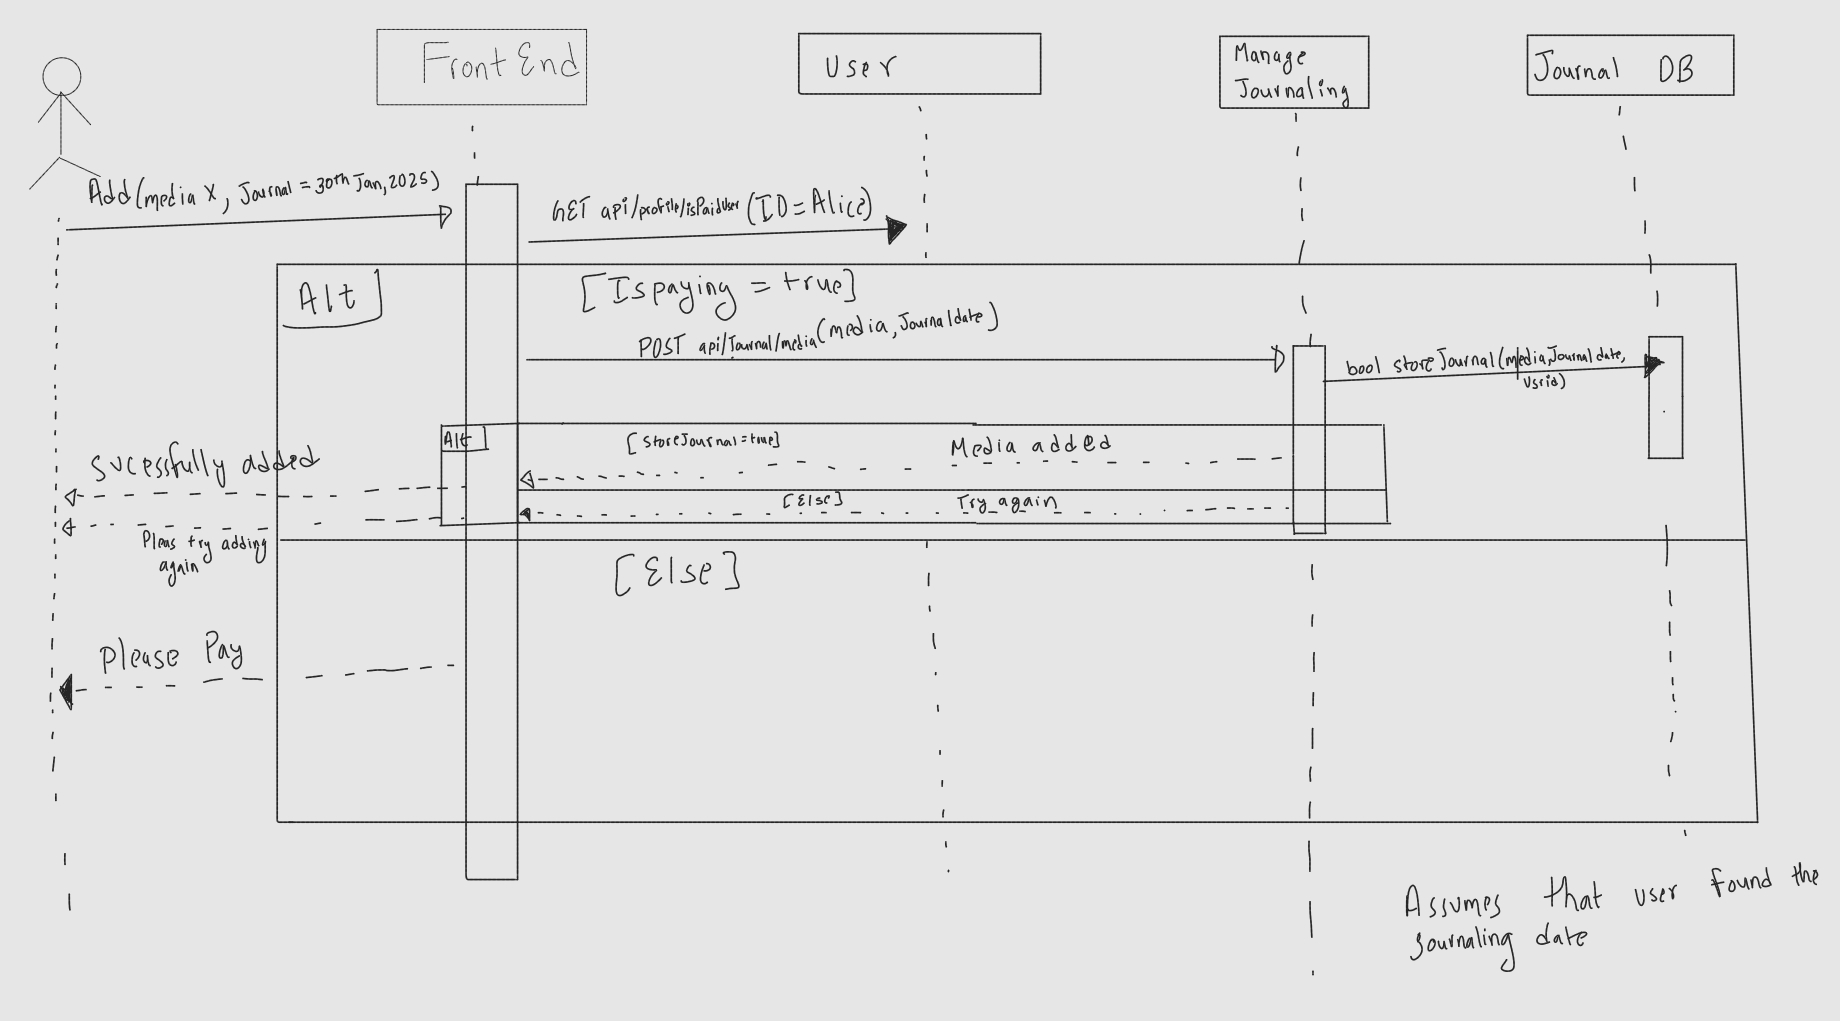 Front End
User
Manage
Journaling
Journal DB
Add(media X, Journal = 30th Jan, 2025)
GET api/profile/isPaidUser (ID=Alice)
Alt
[Ispaying = true]
POST api/Journal/media(media, Journal date)
bool store Journal(media, Journal date,
Usrid)
Alt
[StoreJournal=true]
Media added
Sucessfully added
[Else]
Try again
Pleas try adding
again
[Else]
Please Pay
Assumes that user found the
journaling date